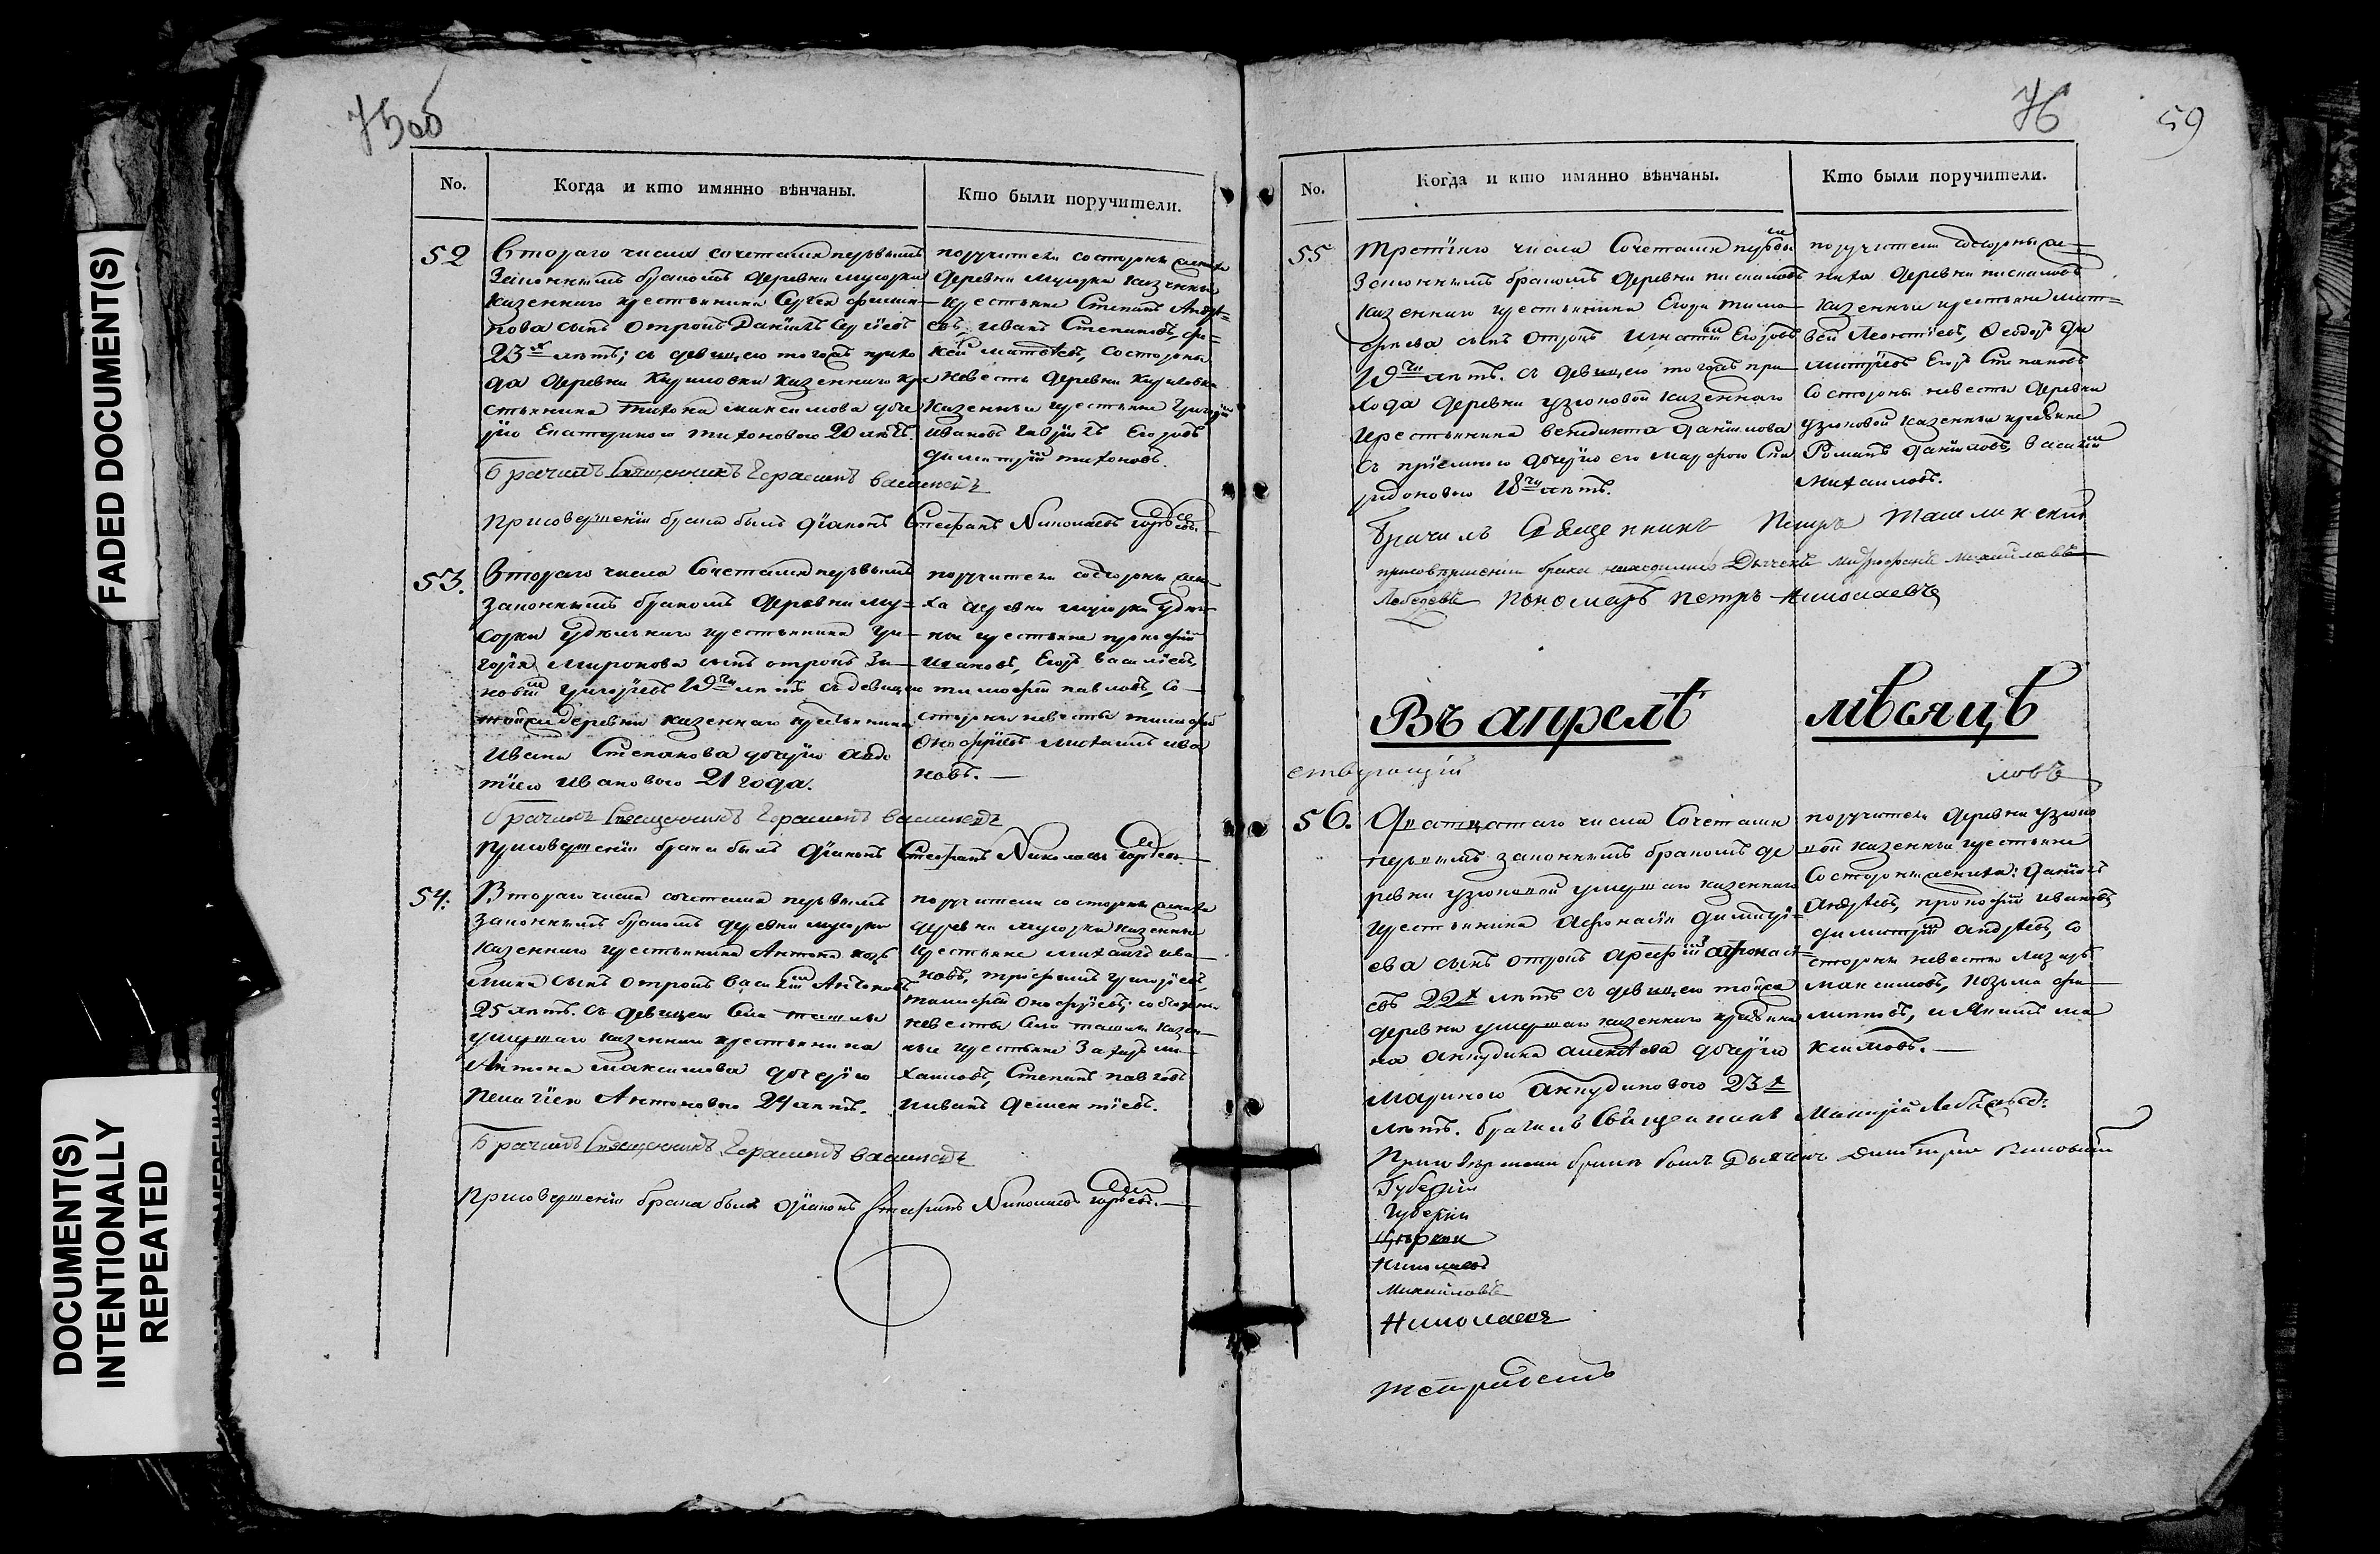 FADED DOCUMENT(S)
DOCUMENT(S)
INTENTIONALLY
REPEATED
75об
No.
Когда и кто имянно вѣнчаны.
Кто были поручители.
52
Втораго числа сочетались первымъ
законнымъ бракомъ деревни мусорки
казеннаго крестьянина Сергея филип
пова сынъ отрокъ Данiилъ Сергiевъ
23х лѣтъ; съ девицею тогожъ прихо
да деревни Кириловки казеннаго кре
стьянина тихона максимова доче
рiю Екатериною тихоновою 20 лѣтъ.
поручители состороны жениха
деревни мусорки казенныя
крестьяне Степанъ Андре=
евъ, иванъ Степановъ,
матвѣевъ, состороны
невесты деревни Кириловки
Казенные крестьяне Григорiй
ивановъ гаврiилъ Егоровъ
димитрiй тихоновъ.
Брачилъ Священникъ Герасимъ
присовершенiи брака былъ дiаконъ Стефанъ Николаевъ
53.
Втораго числа Сочетались первымъ
законнымъ бракомъ деревни му=
сорки удѣльнаго крестьянина гри
горiя миронова сынъ отрокъ Зи
новiй григорiевъ 19ти лѣтъ съ девицею
тойже деревни казеннаго крестьянина
ивана Степанова дочерiю авдо
тiею ивановою 21 года.
поручители состороны жени
ха деревни мусорки удель
ные крестьяне прокофiй
Егоръ василiевъ,
тимофей павловъ, со
стороны невесты тимофей
Онофрiевъ михаилъ ива
новъ.
Брачилъ Священникъ Герасимъ
присовершенiи брака былъ дiаконъ Стефанъ Николаевъ
54.
Втораго числа сочетались первымъ
законнымъ бракомъ деревни мусорки
казеннаго крестьянина Антона козь
мина сынъ отрокъ василiй Антоновъ
25 лѣтъ. съ девицею Села ташлы
умершаго казеннаго крестьянина
Антона максимова дочерiю
пелагiею Антоновою 24 лѣтъ.
поручители состороны жениха
деревни мусорки казенные
крестьяне михаилъ ива
новъ, трофимъ григорiевъ,
тимофей Онофрiевъ; состороны
невесты Села ташлы казен
ные крестьяне Захаръ ми
хаиловъ, Степанъ павловъ
иванъ дементiевъ.
Брачилъ Священникъ Герасимъ
Присовершенiи брака былъ дiаконъ Стефанъ Николаевъ
76
59
No.
Когда и кто имянно вѣнчаны.
Кто были поручители.
55
третiяго числа Сочетались первы
законнымъ бракомъ деревни пискаловъ
казеннаго крестьянина Егора тимо
феева сынъ отрокъ игнатiй Егоровъ
19ти лѣтъ. съ девицею тогожъ при
хода деревни узюковой казеннаго
крестьянина венедикта данилова
съ прiемною дочерiю его марфою Спи
ридоновою 18ти лѣтъ.
поручители состороны же
ниха деревни пискаловъ
казенные крестьяне мат=
вей Леонтiевъ, Феодоръ ди
митрiевъ Егоръ Степановъ
Состороны невесты деревни
узюковой казенные крестьяне
Романъ даниловъ, василiй
михаиловъ.
Брачилъ Священникъ Петръ Ташлинскiй
присовершенiи брака находились Дьячекъ митрофанъ михайловъ
Лебедевъ Пономарь петръ Николаевъ
Въ апрелѣ мѣсяцѣ
ствующiй
ловъ
56.
Дватцатаго числа Сочетались
первымъ законнымъ бракомъ де
ревни узюковой умершаго казеннаго
крестьянина афонасiя димитрi=
ева сынъ отрокъ арефiй афонасi
евъ 22х лѣтъ съ девицею тойже
деревни умершаго казеннаго крестьяни
на анкудина алексѣева дочерiю
мариною анкудиновою 23х
лѣтъ. брачилъ Священникъ
поручители деревни узюко
вой казенные крестьяне
Состороны жениха: данiилъ
андрѣевъ, прокофiй ивановъ,
димитрiй андрѣевъ, со
стороны невесты лазарь
максимовъ, козьма фи
липповъ, и никита ма
ксимовъ.
При совершенiи брака былъ Дьячекъ Димитрiй
Губернiи
Губернiи
Церкви
Николаевъ
михайловъ
Николаевъ